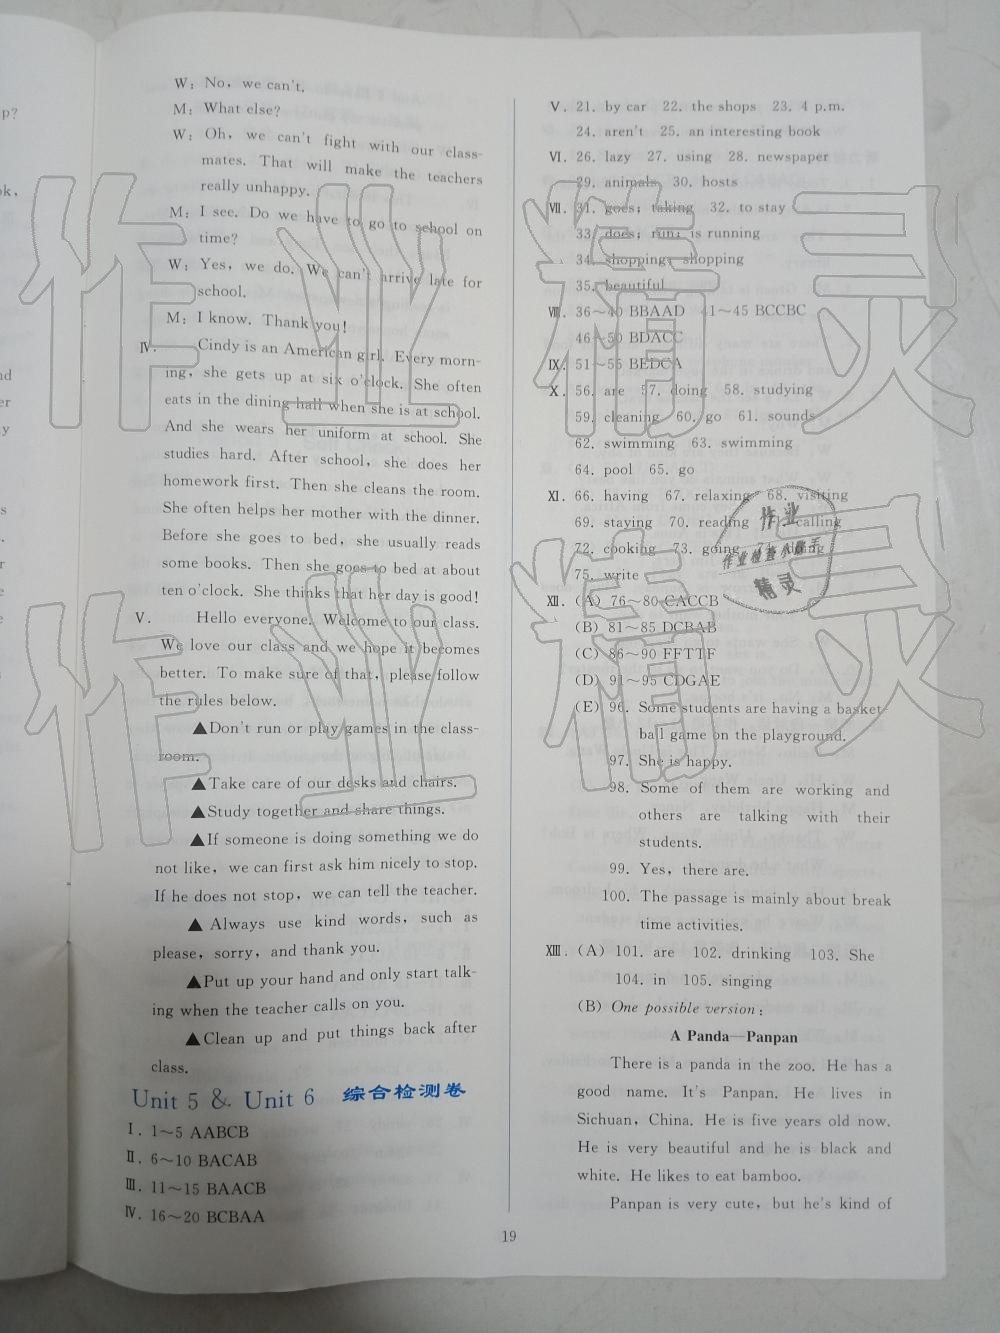 p?
ok,
nd
er
y
s
r
e
W: No, we can't.
M: What else?
W: Oh, we can't fight with our class-
mates. That will make the teachers
really unhappy.
M: I see. Do we have to go to school on
time?
W: Yes, we do. We can't arrive late for
school.
M: I know. Thank you!
Ⅳ. Cindy is an American girl. Every morn-
ing, she gets up at six o'clock. She often
eats in the dining hall when she is at school.
And she wears her uniform at school. She
studies hard. After school, she does her
homework first. Then she cleans the room.
She often helps her mother with the dinner.
Before she goes to bed, she usually reads
some books. Then she goes to bed at about
ten o'clock. She thinks that her day is good!
Ⅴ. Hello everyone. Welcome to our class.
We love our class and we hope it becomes
better. To make sure of that, please follow
the rules below.
▲Don't run or play games in the class-
room.
▲Take care of our desks and chairs.
▲Study together and share things.
▲If someone is doing something we do
not like, we can first ask him nicely to stop.
If he does not stop, we can tell the teacher.
▲Always use kind words, such as
please, sorry, and thank you.
▲Put up your hand and only start talk-
ing when the teacher calls on you.
▲Clean up and put things back after
class.
Unit 5 & Unit 6 综合检测卷
Ⅰ. 1~5 AABCB
Ⅱ. 6~10 BACAB
Ⅲ. 11~15 BAACB
Ⅳ. 16~20 BCBAA
Ⅴ. 21. by car 22. the shops 23. 4 p.m.
24. aren't 25. an interesting book
Ⅵ. 26. lazy 27. using 28. newspaper
29. animals 30. hosts
Ⅶ. 31. goes; taking 32. to stay
33. does; run; is running
34. shopping; shopping
35. beautiful
Ⅷ. 36~40 BBAAD 41~45 BCCBC
46~50 BDACC
Ⅸ. 51~55 BEDCA
Ⅹ. 56. are 57. doing 58. studying
59. cleaning 60. go 61. sounds
62. swimming 63. swimming
64. pool 65. go
Ⅺ. 66. having 67. relaxing 68. visiting
69. staying 70. reading 71. calling
72. cooking 73. going 74. doing
75. write
Ⅻ. (A) 76~80 CACCB
(B) 81~85 DCBAB
(C) 86~90 FFTTF
(D) 91~95 CDGAE
(E) 96. Some students are having a basket-
ball game on the playground.
97. She is happy.
98. Some of them are working and
others are talking with their
students.
99. Yes, there are.
100. The passage is mainly about break
time activities.
XIII. (A) 101. are 102. drinking 103. She
104. in 105. singing
(B) One possible version:
A Panda—Panpan
There is a panda in the zoo. He has a
good name. It's Panpan. He lives in
Sichuan, China. He is five years old now.
He is very beautiful and he is black and
white. He likes to eat bamboo.
Panpan is very cute, but he's kind of
19
作业精灵
作业精灵
作业
作业检查小助手
精灵